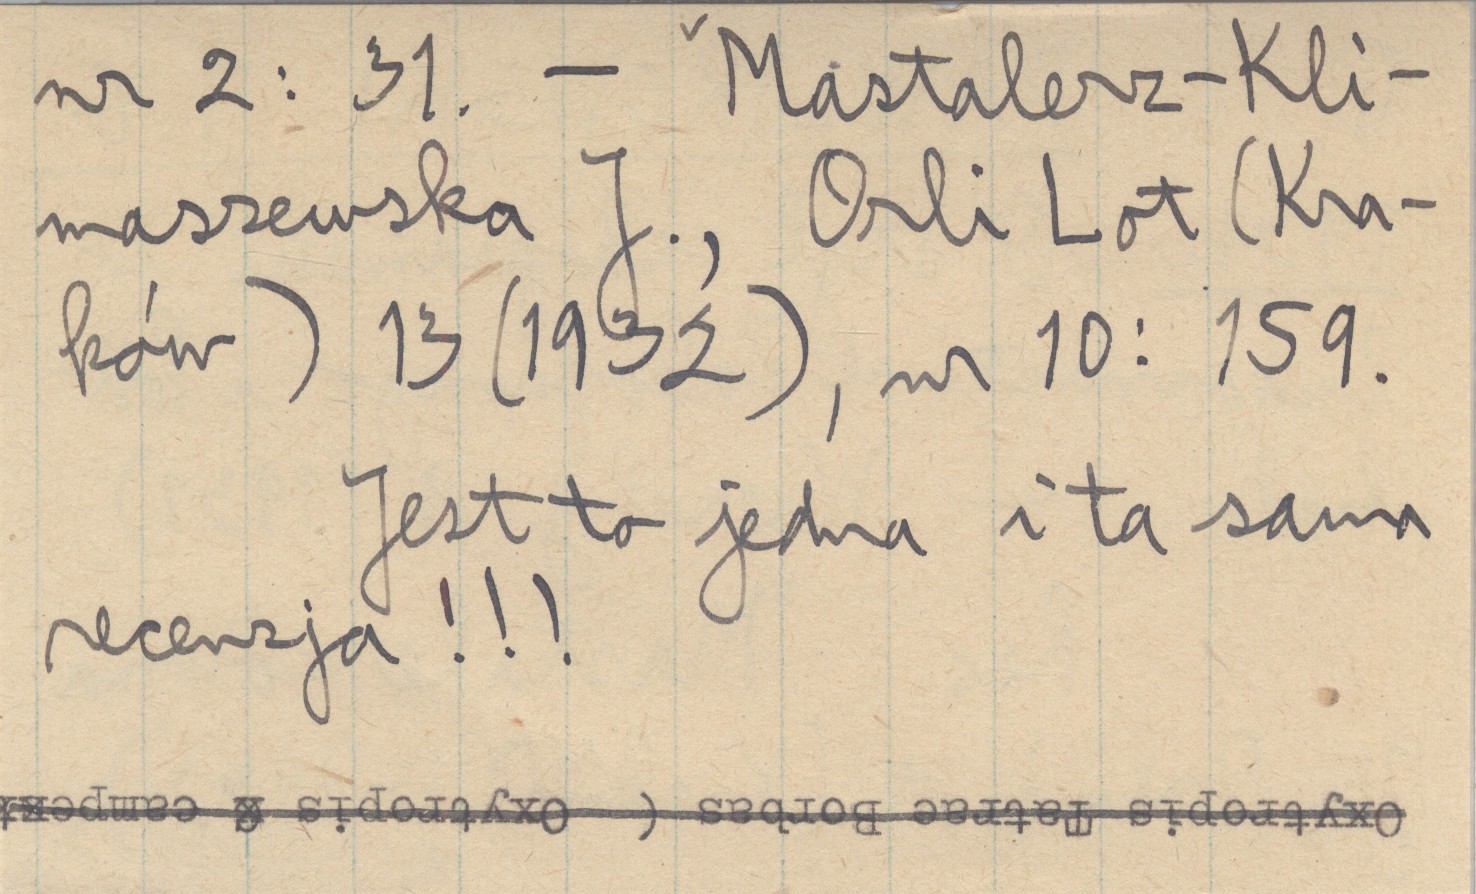 nr 2: 31. — Mastalerz-Kli-
maszewska J., Orli Lot (Kra-
ków) 13 (1932), nr 10: 159.
Jest to jedna i ta sama
recenzja!!!
Oxytropis Tatrae Borbas ( Oxytropis